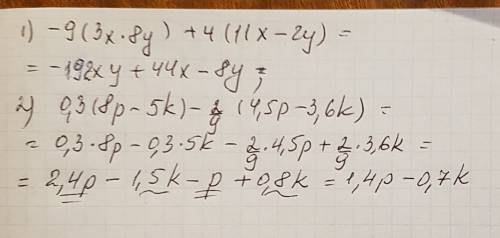 1) -9(3x·8y) + 4(11x-2y) =
= -192xy + 44x - 8y ;
2) 0,3(8p-5k) - 2/9 (4,5p-3,6k) =
= 0,3·8p - 0,3·5k - 2/9·4,5p + 2/9·3,6k =
= 2,4p - 1,5k - p + 0,8k = 1,4p - 0,7k